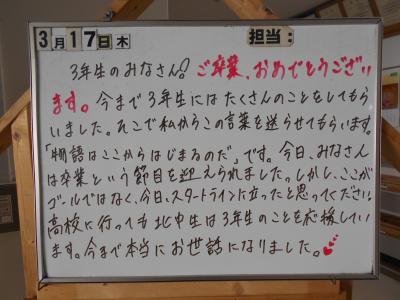 3月17日木 担当:
3年生のみなさん!ご卒業、おめでとうござい
ます。今まで3年生にはたくさんのことをしてもら
いました。そこで私からこの言葉を送らせてもらいます。
「物語はここからはじまるのだ」です。今日、みなさん
は卒業という節目を迎えられました。しかし、ここが
ゴールではなく、今日、スタートラインに立ったと思ってください。
高校に行っても北中生は3年生のことを応援してい
ます。今まで本当にお世話になりました。